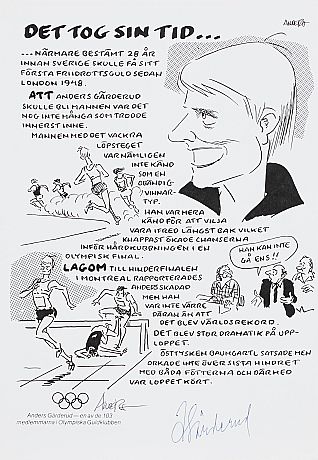 DET TOG SIN TID...
... NÄRMARE BESTÄMT 28 ÅR
INNAN SVERIGE SKULLE FÅ SITT
FÖRSTA FRIIDROTTSGULD SEDAN
LONDON 1948.
ATT ANDERS GÄRDERUD
SKULLE BLI MANNEN VAR DET
NOG INTE MÅNGA SOM TRODDE
INNERST INNE.
MANNEN MED DET VACKRA
LÖPSTEGET
VAR NÄMLIGEN
INTE KÄND
SOM EN
OBÄNDIG
VINNAR-
TYP.
HAN VAR MERA
KÄND FÖR ATT VILJA
VARA I FRED LÄNGST BAK VILKET
KNAPPAST ÖKADE CHANSERNA
INFÖR HÅRDKLUBBNINGEN I EN
OLYMPISK FINAL.
HAN KAN INTE
GÅ ENS!!
LAGOM TILL HINDERFINALEN
I MONTREAL RAPPORTERADES
ANDERS SKADAD
MEN HAN
VAR INTE VÄRRE
DÄRAN ÄN ATT
DET BLEV VÄRLDSREKORD.
DET BLEV STOR DRAMATIK PÅ UPP-
LOPPET.
ÖSTTYSKEN BAUMGARTL SATSADE MEN
ORKADE INTE ÖVER SISTA HINDRET
MED BÅDA FÖTTERNA OCH DÄRMED
VAR LOPPET KÖRT.
Anders Gärderud — en av de 103
medlemmarna i Olympiska Guldklubben